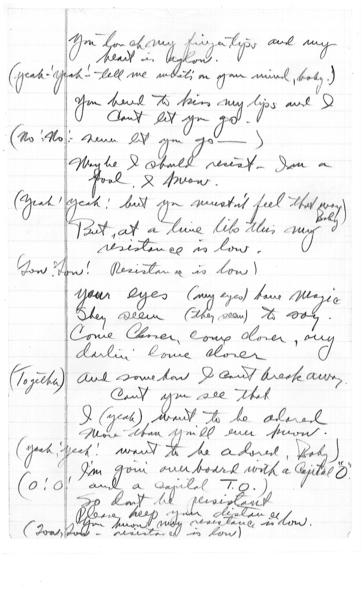 You touch my fingertips and my
heart is aglow.
(yeah! yeah! - tell me what's on your mind, baby.)
You bend to kiss my lips and I
Can't let you go.
(No! No! never let you go —)
Maybe I should resist - I am a
fool, I know.
(Yeah! yeah! but you mustn't feel that way Baby)
But, at a time like this my
resistance is low.
Low! Low! Resistance is low!
Your eyes (my eyes) have magic
They seem (they seem) to say.
Come closer, come closer, my
darlin' come closer
(Together) and somehow I can't break away.
Can't you see that
I (yeah) want to be adored
more than you'll ever know.
(yeah! yeah! want to be adored, Baby)
I'm goin' overboard with a Capital "O"
(O! O! and a capital T.O.)
So don't be persistant
Please keep your distance
You know my resistance is low.
(Low, Low - resistance is low)